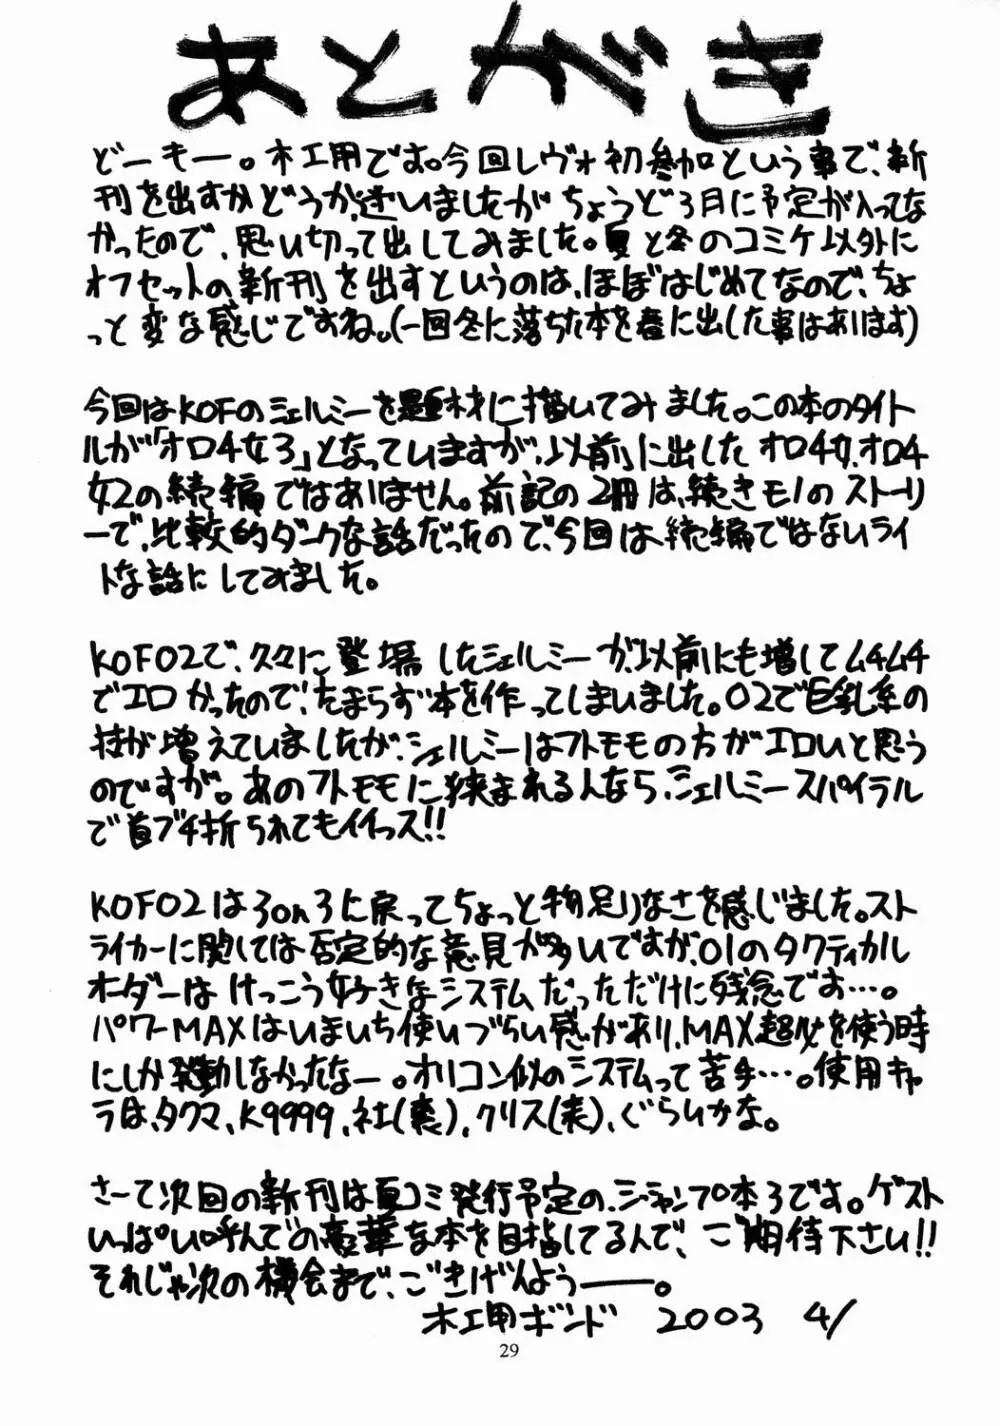 あとがき
どーもー。木工用です。今回レヴォ初参加という事で、新
刊を出すかどうか迷いましたがちょうど3月に予定が入ってな
かったので、思い切って出してみました。夏と冬のコミケ以外に
オフセットの新刊を出すというのは、ほぼはじめてなので、ちょ
っと変な感じですね。(一回冬に落ちた本を春に出した事はあります)
今回はKOFのシェルミーを題材に描いてみました。この本のタイト
ルが「オロチ女3」となっていますが、以前に出したオロチ女、オロチ
女2の続編ではありません。前記の2冊は、続きモノのストーリ
ーで、比較的ダークな話だったので、今回は続編ではないライ
トな話にしてみました。
KOF02で、久々に登場したシェルミーが、以前にも増してムチムチ
でエロかったので、たまらず本を作ってしまいました。02で巨乳系の
技が増えていましたが、シェルミーはフトモモの方がエロいと思う
のですが。あのフトモモに挟まれる人なら、シェルミースパイラル
で首ブチ折られてもイイっス!!
KOF02は3on3に戻ってちょっと物足りなさを感じました。スト
ライカーに関しては否定的な意見が多いですが、01のタクティカル
オーダーはけっこう好きなシステムだっただけに残念でお…。
パワーMAXはいまいち使いづらい感があり、MAX超必を使う時
にしか発動しなかったなー。オリコン似のシステムって苦手…。使用キャ
ラは、タクマ、K9999、社(裏)、クリス(表)、ぐらいかな。
さーて次回の新刊は夏コミ発行予定の、ジャンプ本3です。ゲスト
いっぱい呼んでの豪華な本を目指してるんで、ご期待下さい!!
それじゃ次の機会まで、ごきげんようーー。
木工用ボンド 2003 4/
29